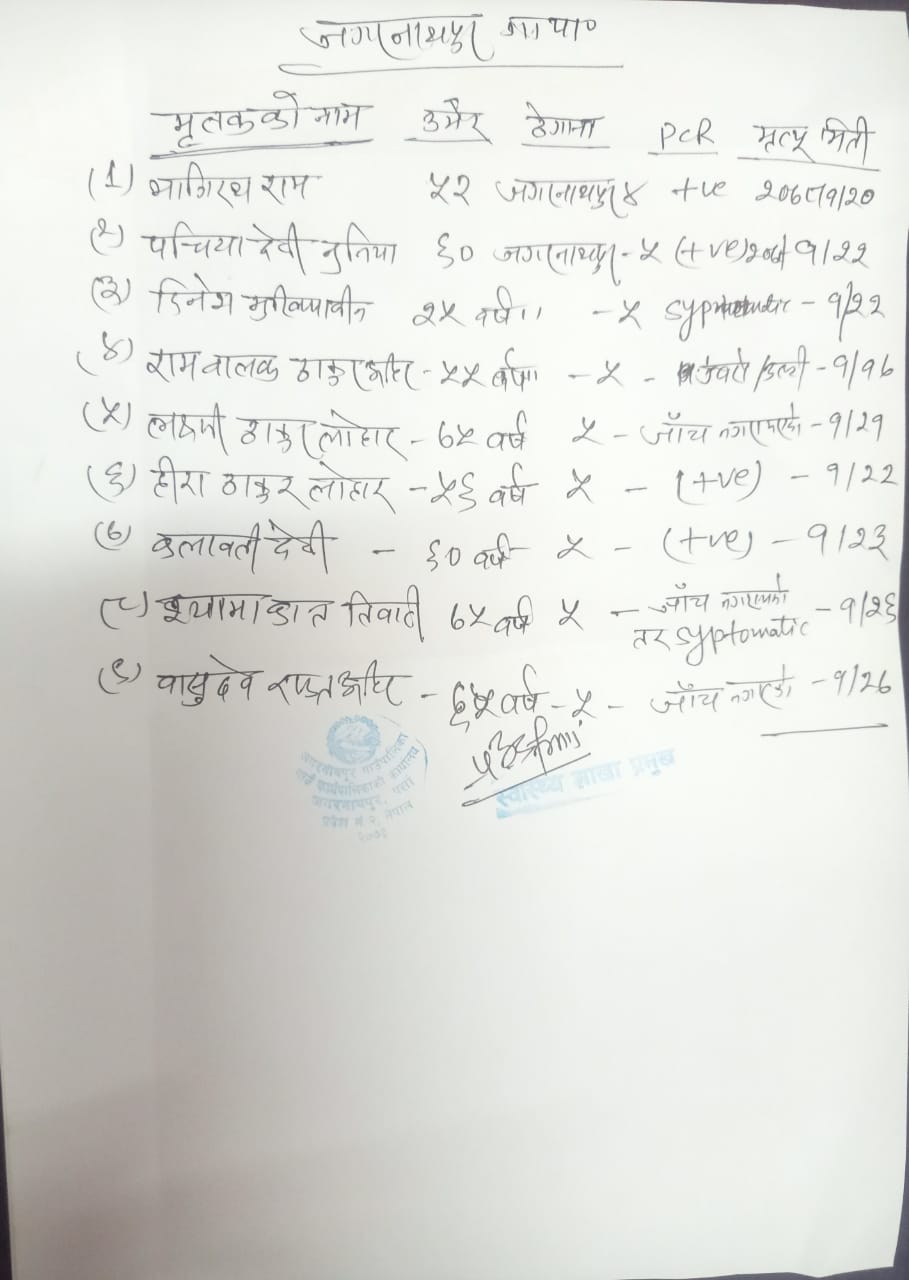 जगरनाथपुर गा०पा०
मृतकको नाम उमेर ठेगाना PCR मृत्यू मिती
(1) भागिरथ राम ५२ जगरनाथपुर ४ +ve २०७८/१/२०
(२) पन्चिया देवी नुनिया ६० जगरनाथपुर - ५ (+ve) २०७८ १/२२
(३) दिनेश २५ वर्ष ।। - ५ - १/२२
(४) राम वालक ठाकुर - ५५ वर्ष ।। - ५ - - १/१६
(५) लक्ष्मी ठाकुर लोहार - ७५ वर्ष ५ - जाँच नगराएको - १/२१
(६) हीरा ठाकुर लोहार - ५६ वर्ष ५ - (+ve) - १/२२
(७) कलावती देवी - ६० वर्ष ५ - (+ve) - १/२३
(८) श्यामाकान्त तिवारी ७५ वर्ष ५ - जाँच नगराएको तर syptomatic - १/२६
(९) वासुदेव - ६५ वर्ष - ५ - जाँच नगराएको - १/२६
जगरनाथपुर गाउँपालिका
गाउँ कार्यपालिकाको कार्यालय
जगरनाथपुर, पर्सा
प्रदेश नं. २, नेपाल
२०७३
स्वास्थ्य शाखा प्रमुख